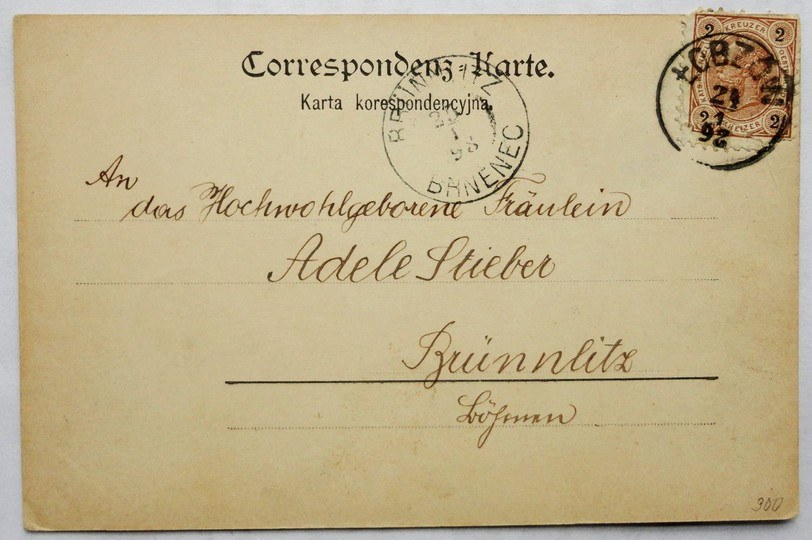 Correspondenz-Karte.
Karta korespondencyjna.
2 KREUZER 2
ŁOBZÓW
24
1
98
BRÜNNLITZ
1
98
BRNĚNEC
An
das Hochwohlgeborene Fräulein
Adele Stieber
Brünnlitz
Böhmen
300